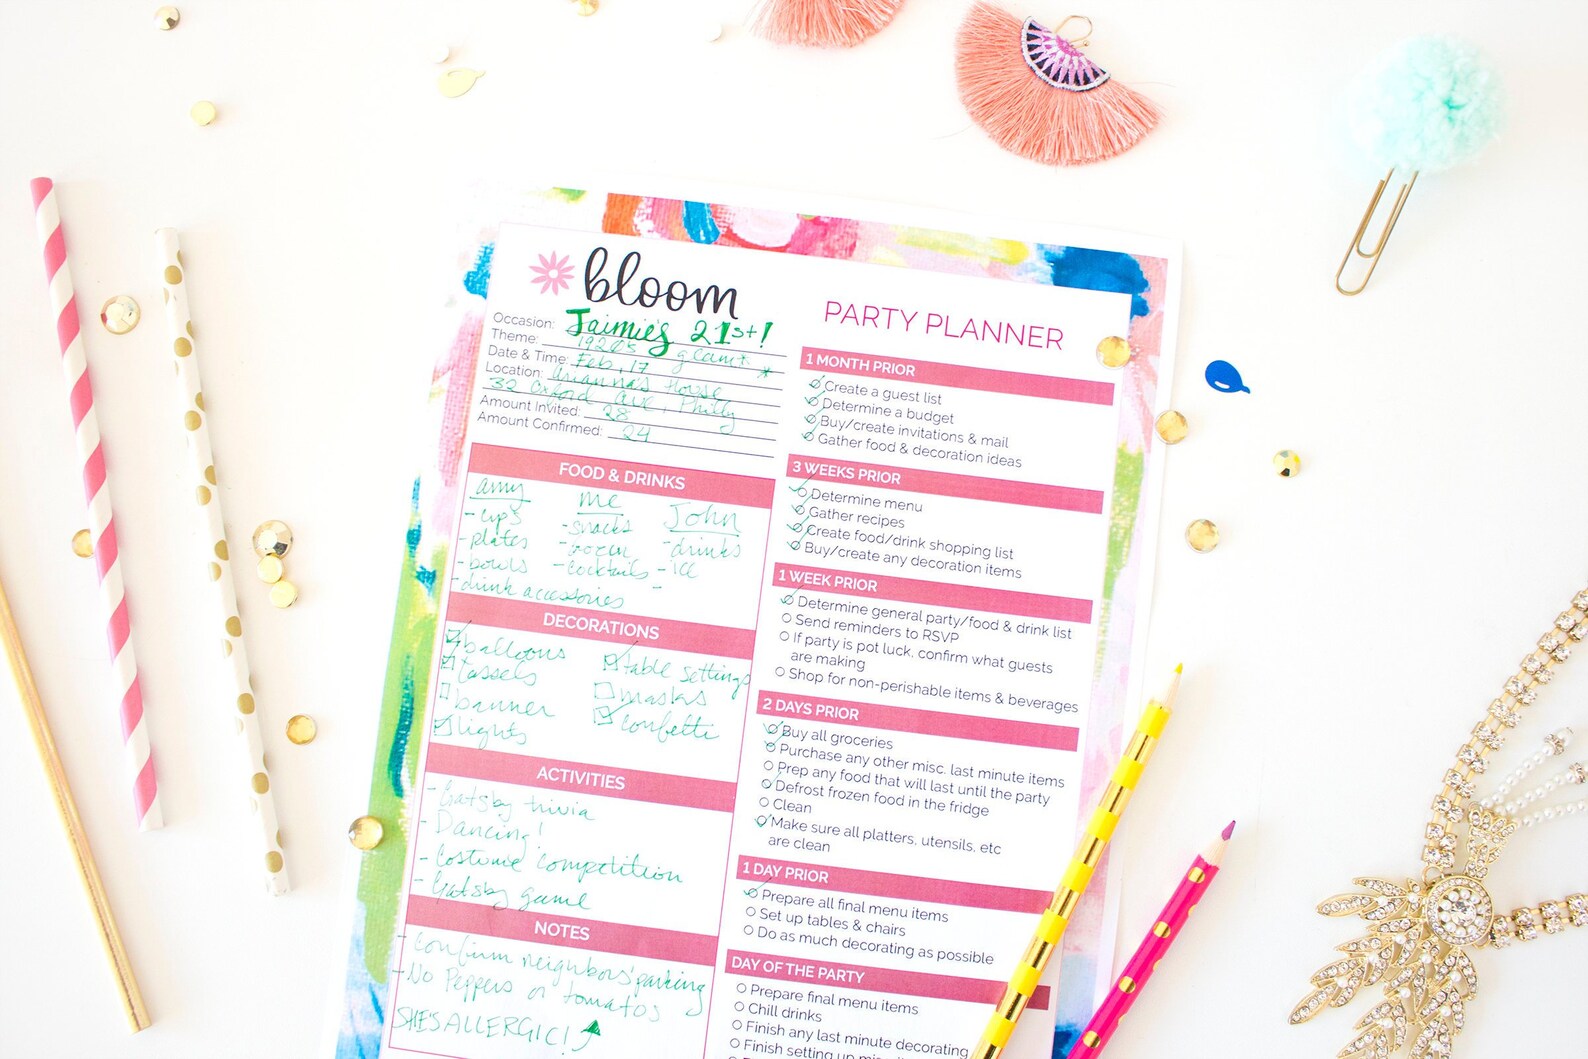 bloom
Occasion: Jaimie's 21st!
Theme: 1920s glam *
Date & Time: Feb. 17
Location: Arianna's House
32 Oxford Ave, Philly
Amount Invited: 28
Amount Confirmed: 24
FOOD & DRINKS
amy
- cups
- plates
- bowls
- drink accessories
me
- snacks
- cocktails
John
- drinks
- ice
-
DECORATIONS
balloons
tassels
banner
lights
table settings
masks
confetti
ACTIVITIES
- Gatsby trivia
- Dancing!
- Costume competition
- Gatsby game
NOTES
- confirm neighbors' parking
- No Peppers or tomatos
SHE'S ALLERGIC!
PARTY PLANNER
1 MONTH PRIOR
Create a guest list
Determine a budget
Buy/create invitations & mail
Gather food & decoration ideas
3 WEEKS PRIOR
Determine menu
Gather recipes
Create food/drink shopping list
Buy/create any decoration items
1 WEEK PRIOR
Determine general party/food & drink list
Send reminders to RSVP
If party is pot luck, confirm what guests
are making
Shop for non-perishable items & beverages
2 DAYS PRIOR
Buy all groceries
Purchase any other misc. last minute items
Prep any food that will last until the party
Defrost frozen food in the fridge
Clean
Make sure all platters, utensils, etc
are clean
1 DAY PRIOR
Prepare all final menu items
Set up tables & chairs
Do as much decorating as possible
DAY OF THE PARTY
Prepare final menu items
Chill drinks
Finish any last minute decorating
Finish setting up